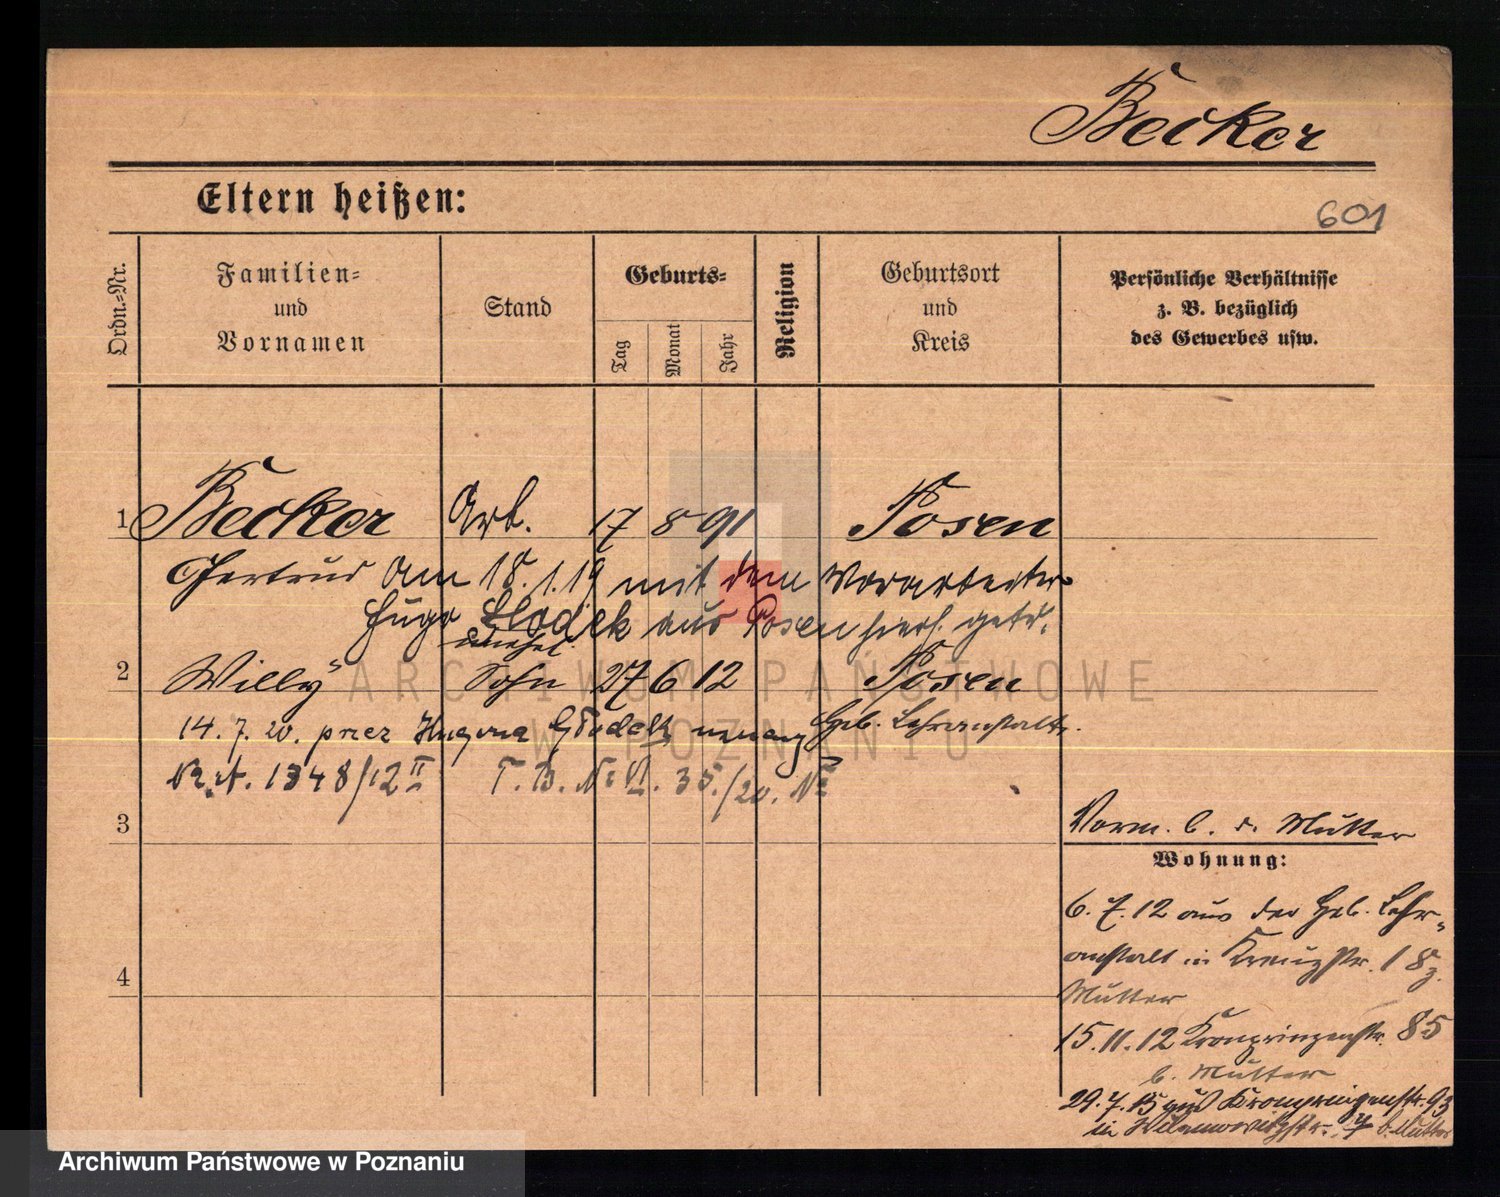 Becker
Eltern heißen:
601
Ordn.-Nr.
Familien-
und
Vornamen
Stand
Geburts-
Tag
Monat
Jahr
Religion
Geburtsort
und
Kreis
Persönliche Verhältnisse
z. B. bezüglich
des Gewerbes usw.
1 Becker Arb. 17 8 91 Posen
Gertrud am 18.1.19 mit dem Vorarbeiter
Hugo aus Posen hier getr.
unehel.
2 Willy Sohn 27 6 12 Posen
14.7.20. przez Hugona uznany Heb. Lehranstalt.
R.A. 1348/12 II T.B. № VI. 35./20. №
3
Vorm. b. d. Mutter
Wohnung:
6.7.12 aus der Heb. Lehr-
anstalt in Kreuzstr. 18 z.
Mutter
4
15.11.12 Kronprinzenstr. 85
b. Mutter
29.7.15 aus Kronprinzenstr. 93
in Wilamowitzstr. 7 b. Mutter
ARCHIWUM PAŃSTWOWE
W POZNANIU
Archiwum Państwowe w Poznaniu